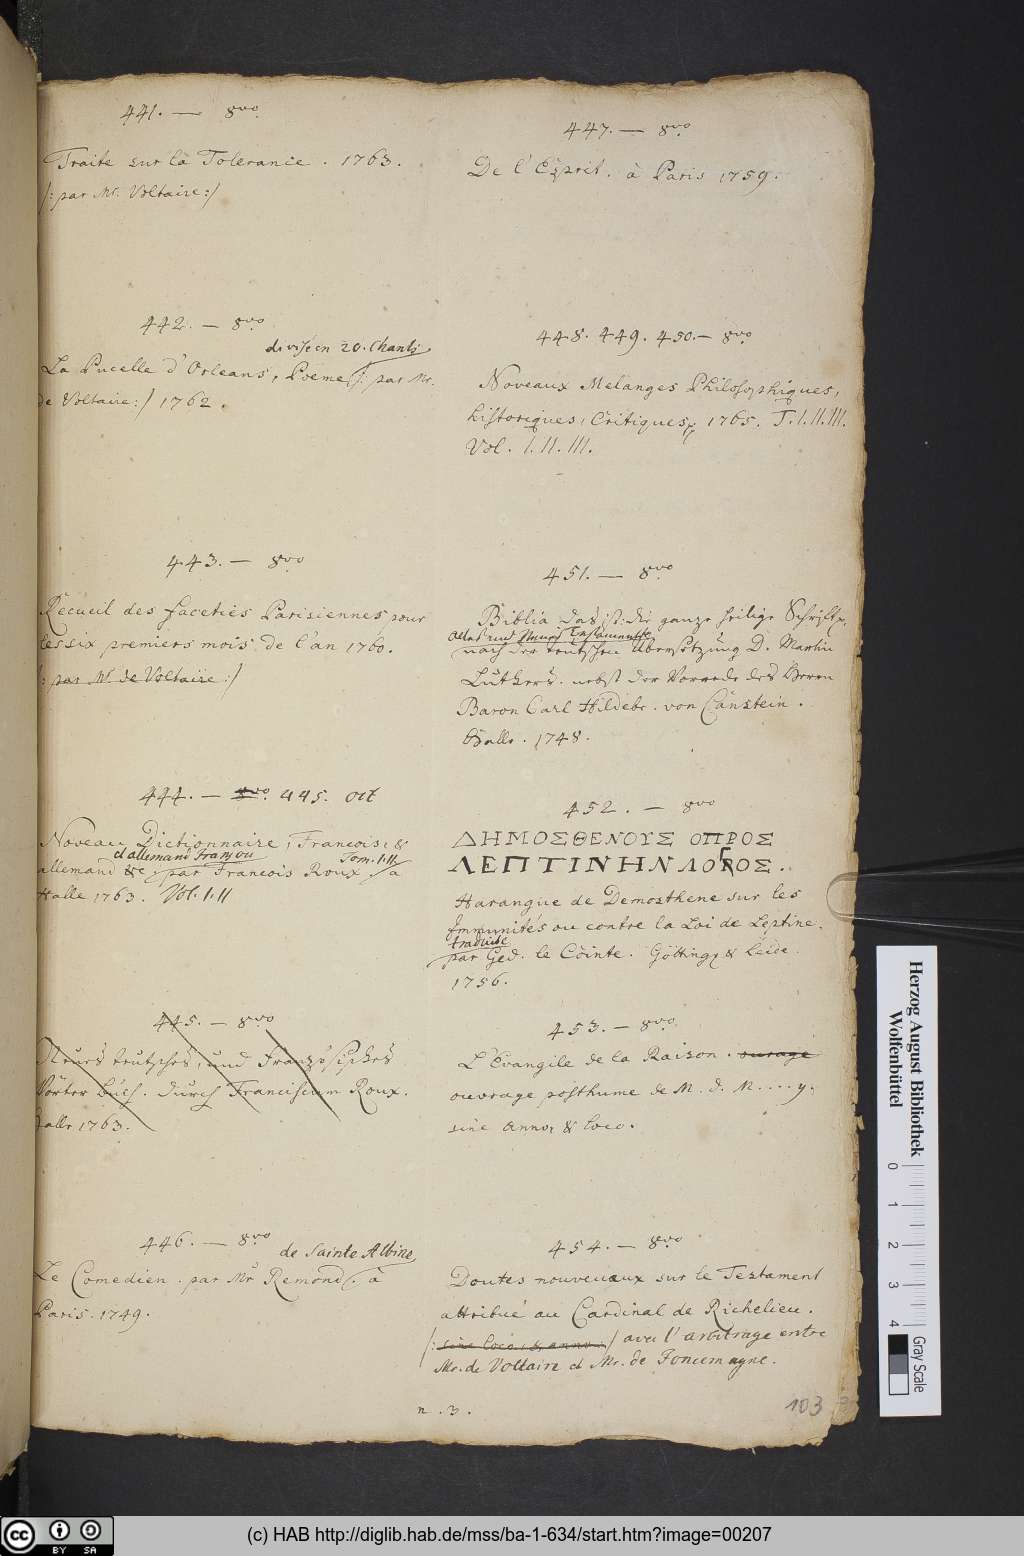 441. — 8vo.
Traite sur la Tolerance. 1763.
/: par Mr. Voltaire :/
442. — 8vo
divisé en 20. Chants
La Pucelle d'Orleans, Poeme /: par Mr.
de Voltaire :/ 1762.
443. — 8vo
Recueil des faceties Parisiennes pour
les six premiers mois de l'an 1760.
/: par Mr. de Voltaire :/
444. — 8vo. 445. Oct
Noveau Dictionnaire, Francois, &
et allemand françois Tom. I. II
allemand &c. par Francois Roux. à
Halle 1763. Vol. I. II
445. — 8vo
Neues teutsches, und Französisches
Wörter Buch. durch Franciscum Roux.
Halle 1763.
446. — 8vo
de Sainte Albine
Le Comedien. par Mr Remond. à
Paris. 1749.
447. — 8vo
De l'Esprit. à Paris 1759.
448. 449. 450. — 8vo
Noveaux Melanges Philosophiques,
historiques, Critiques, 1765. T. I. II. III.
Vol. I. II. III.
451. — 8vo
Biblia das ist: die ganze heilige Schrifft
Altes und Neues Testaments
nach der teutschen Übersetzung D. Martin
Luthers. nebst der Vorrede des Herrn
Baron Carl Hildebr. von Canstein.
Halle. 1748.
452. — 8vo
ΔΗΜΟΣΘΕΝΟΥΣ ΟΠΡΟΣ
ΛΕΠΤΙΝΗΝ ΛΟΓΟΣ.
Harangue de Demosthene sur les
Immunités ou contre la Loi de Leptine.
traduite
par Ged. le Cointe. Götting & Leide.
1756.
453. — 8vo
L'Evangile de la Raison. ourage
ouvrage posthume de M. d. M....y.
sine Anno, & loco.
454. — 8vo
Doutes nouveaux sur le Testament
attribué au Cardinal de Richelieu.
/: sine loco, & anno :/ avec l'arbitrage entre
Mr. de Voltaire et Mr. de Foncemagne.
n. 3.
103
Herzog August Bibliothek
Wolfenbüttel
0 1 2 3 4
Gray Scale
cc BY SA
(c) HAB http://diglib.hab.de/mss/ba-1-634/start.htm?image=00207